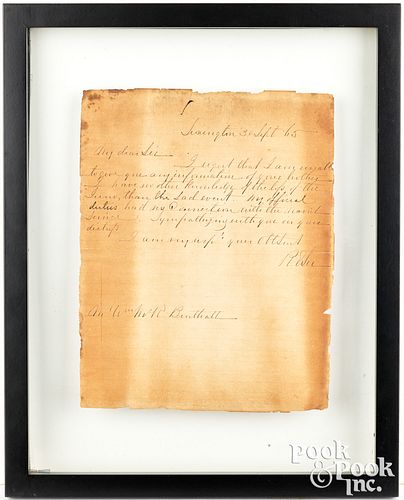 Lexington 30 Sept 65
My dear Sir
I regret that I am unable
to give you any information of your brother
I have no other knowledge of the loss of the
than the sad event. My official
duties had no connection with the naval
Service. Sympathizing with you in your
distress
I am very resp.^t your Obt Svt
R E Lee
Mr Wm M R Benthall
POOK
& POOK
INC.